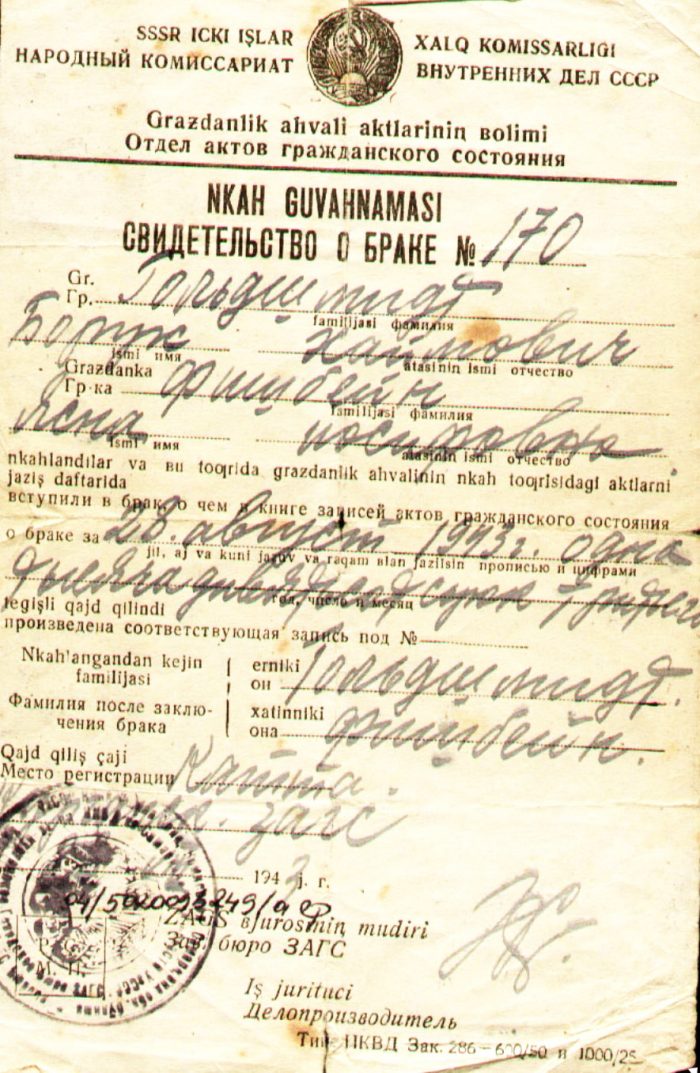 SSSR ICKI IŞLAR XALQ KOMISSARLIGI
НАРОДНЫЙ КОМИССАРИАТ ВНУТРЕННИХ ДЕЛ СССР
Grazdanlik ahvali aktlarinin вolimi
Отдел актов гражданского состояния
NKAH GUVAHNAMASI
СВИДЕТЕЛЬСТВО О БРАКЕ № 170
Gr.
Гр. Гольдшмидт
familijasi фамилия
Борух Хаимович
ismi имя atasinin ismi отчество
Grazdanka
Гр-ка Фишбейн
familijasi фамилия
Ясна Иосифовна
ismi имя atasinin ismi отчество
nkahlandilar va вu toqrida grazdanlik ahvalinin nkah toqrisidagi aktlarni
jaziş daftarida
вступили в брак, о чем в книге записей актов гражданского состояния
о браке за 28. август 1943г. одна
jil, aj va kuni jazuv va raqam вlan jazilsin прописью и цифрами
тысяча девятьсот сорок
год, число и месяц
tegişli qajd qilindi
произведена соответствующая запись под №
Nkah'angandan kejin familijasi
Фамилия после заключения брака
erniki
он Гольдшмидт.
xatinniki
она Фишбейн.
Qajd qiliş çaji
Место регистрации Катта.
загс
1943 j. г.
04/5020093249/а Ф
ZAGS вjurosinin mudiri
Зав. бюро ЗАГС
М. П.
Iş jurituci
Делопроизводитель
Тип. НКВД Зак. 286—600/50 и 1000/25